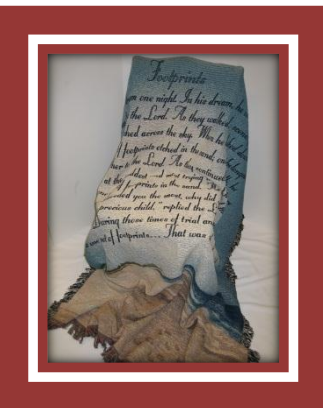 Footprints
one night. In his dream, he
the Lord. As they walked,
across the sky. When he
footprints etched in the sand,
to the Lord. As they continued
and most trying
at the prints in the sand.
needed you the most, why did
precious child," replied the
During those times of trial and
set of footprints... That was